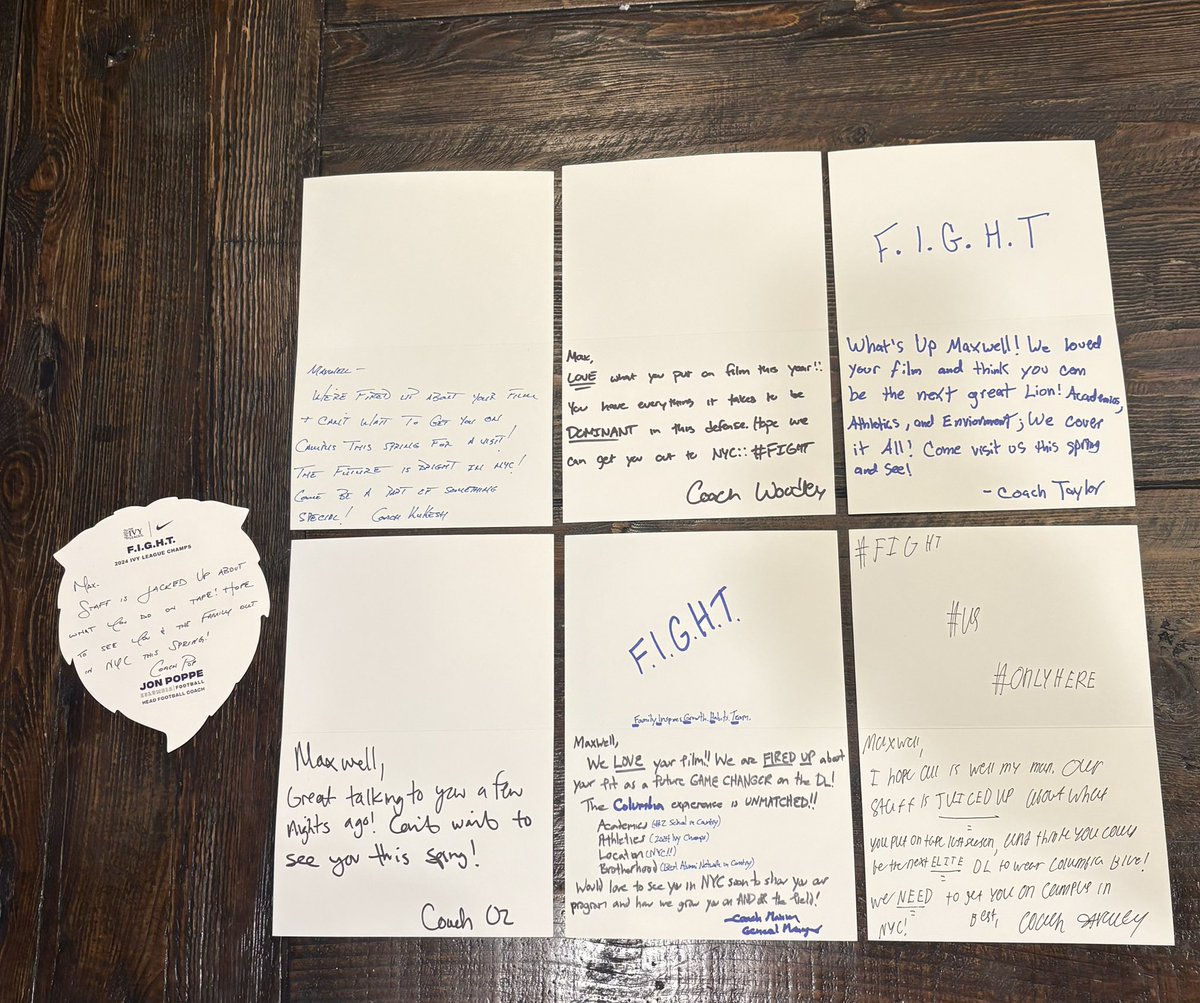 F.I.G.H.T.
2024 IVY LEAGUE CHAMPS
Max.
STAFF IS JACKED UP ABOUT
WHAT YOU DO ON TAPE! HOPE
TO SEE YOU & THE FAMILY OUT
IN NYC THIS SPRING!
COACH POP
JON POPPE
COLUMBIA | FOOTBALL
HEAD FOOTBALL COACH
MAXWELL -
WE'RE FIRED UP ABOUT YOUR FILM
+ CAN'T WAIT TO GET YOU ON
CAMPUS THIS SPRING FOR A VISIT!
THE FUTURE IS BRIGHT IN NYC!
COME BE A PART OF SOMETHING
SPECIAL! COACH KUKESH
Max,
LOVE what you put on film this year!!
You have everything it takes to be
DOMINANT in this defense. Hope we
can get you out to NYC:: #FIGHT
Coach Woodley
F.I.G.H.T
What's Up Maxwell! We loved
your film and think you can
be the next great Lion! Academics,
Athletics, and Enviornment; We cover
it All! Come visit us this spring
and see!
- Coach Taylor
Maxwell,
Great talking to you a few
nights ago! Can't wait to
see you this spring!
Coach Oz
F.I.G.H.T.
Family. Inspires. Growth. Habits. Team.
Maxwell,
We LOVE your film!! We are FIRED UP about
your fit as a future GAME CHANGER on the DL!
The Columbia experience is UNMATCHED!!
Academics (#2 School in Country)
Athletics (2024 Ivy Champs)
Location (NYC!!)
Brotherhood (Best Alumni Network in Country)
Would love to see you in NYC soon to show you our
program and how we grow you on AND off the field!
- Coach
General Manager
#FIGHT
#US
#ONLYHERE
Maxwell,
I hope all is well my man. Our
staff is JUICED UP about what
you put on tape last season, and think you could
be the next ELITE DL to wear Columbia Blue!
we NEED to get you on campus in
NYC! Best, Coach